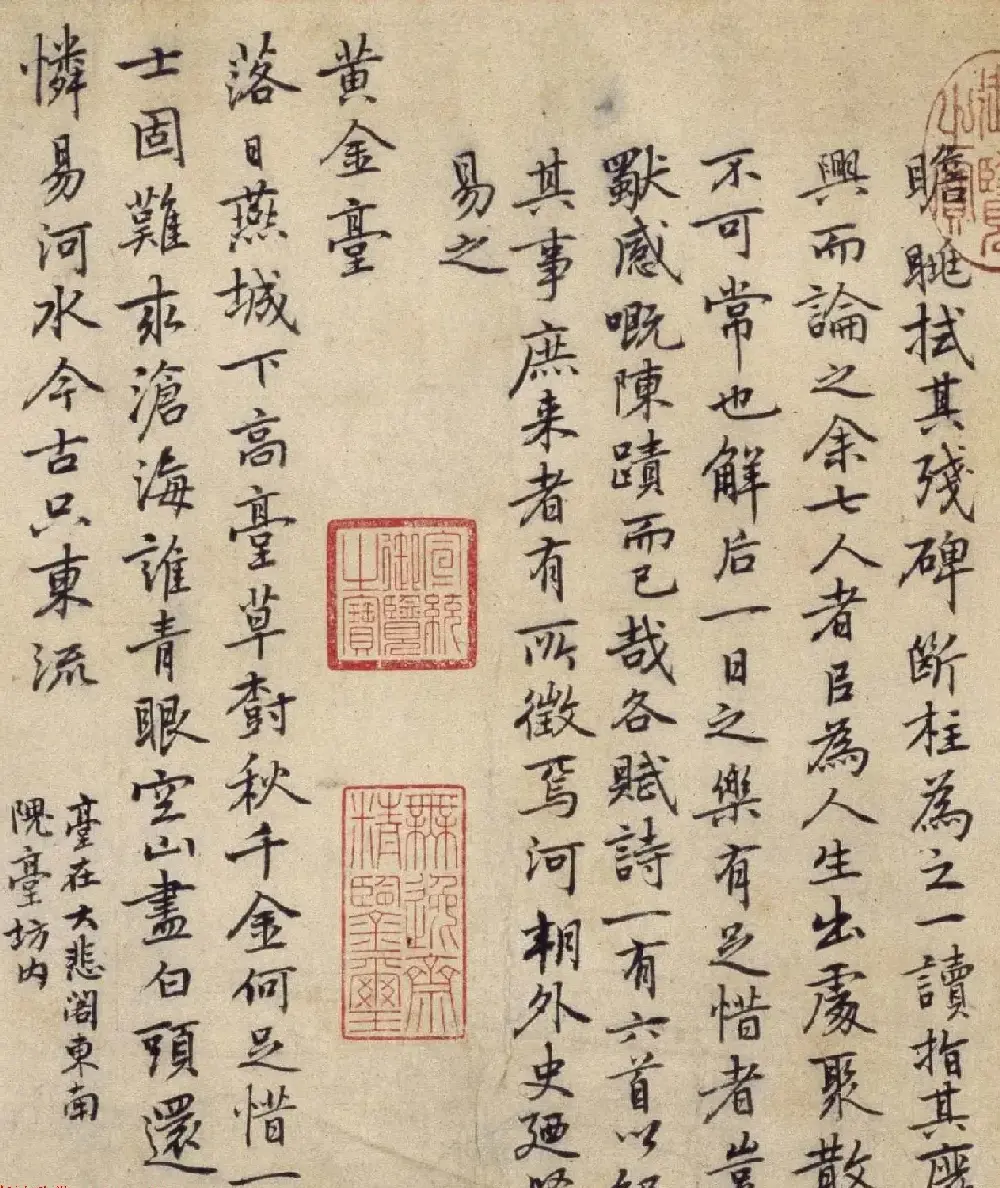 瞻眺拭其殘碑斷柱為之一讀指其廢
興而論之余七人者以為人生出處聚散
不可常也解后一日之樂有足惜者豈
獻感嘅陳蹟而已哉各賦詩一有六首以
其事庶来者有所徵焉河朔外史廼
易之
黄金臺
落日燕城下高臺草樹秋千金何足惜一
士固難求滄海誰青眼空山盡白頭還
憐易河水今古只東流
臺在大悲閣東南
隗臺坊内
宣統
御覽
之寶
無逸齋
精鑒璽